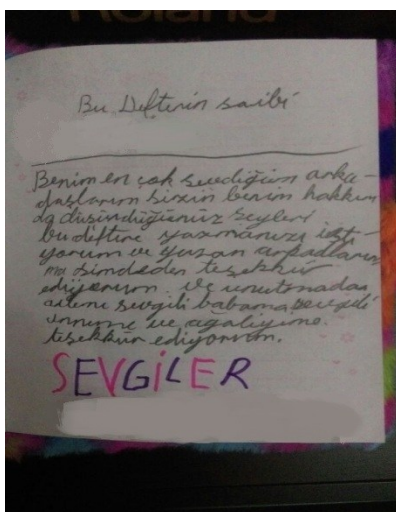 Roland
Bu Defterin saibi
Benim en çok sevdiğim arka-
daşlarım sizin benim hakkım
da düşündüğünüz şeyleri
bu deftere yazmanızı isti-
yorum ve yazan arkadlarım
ma şimdeden teşekkür
ediyorum. ve unutmadan
sevgili babama sevgili
anneme ve
teşekkür ediyorum.
SEVGİLER